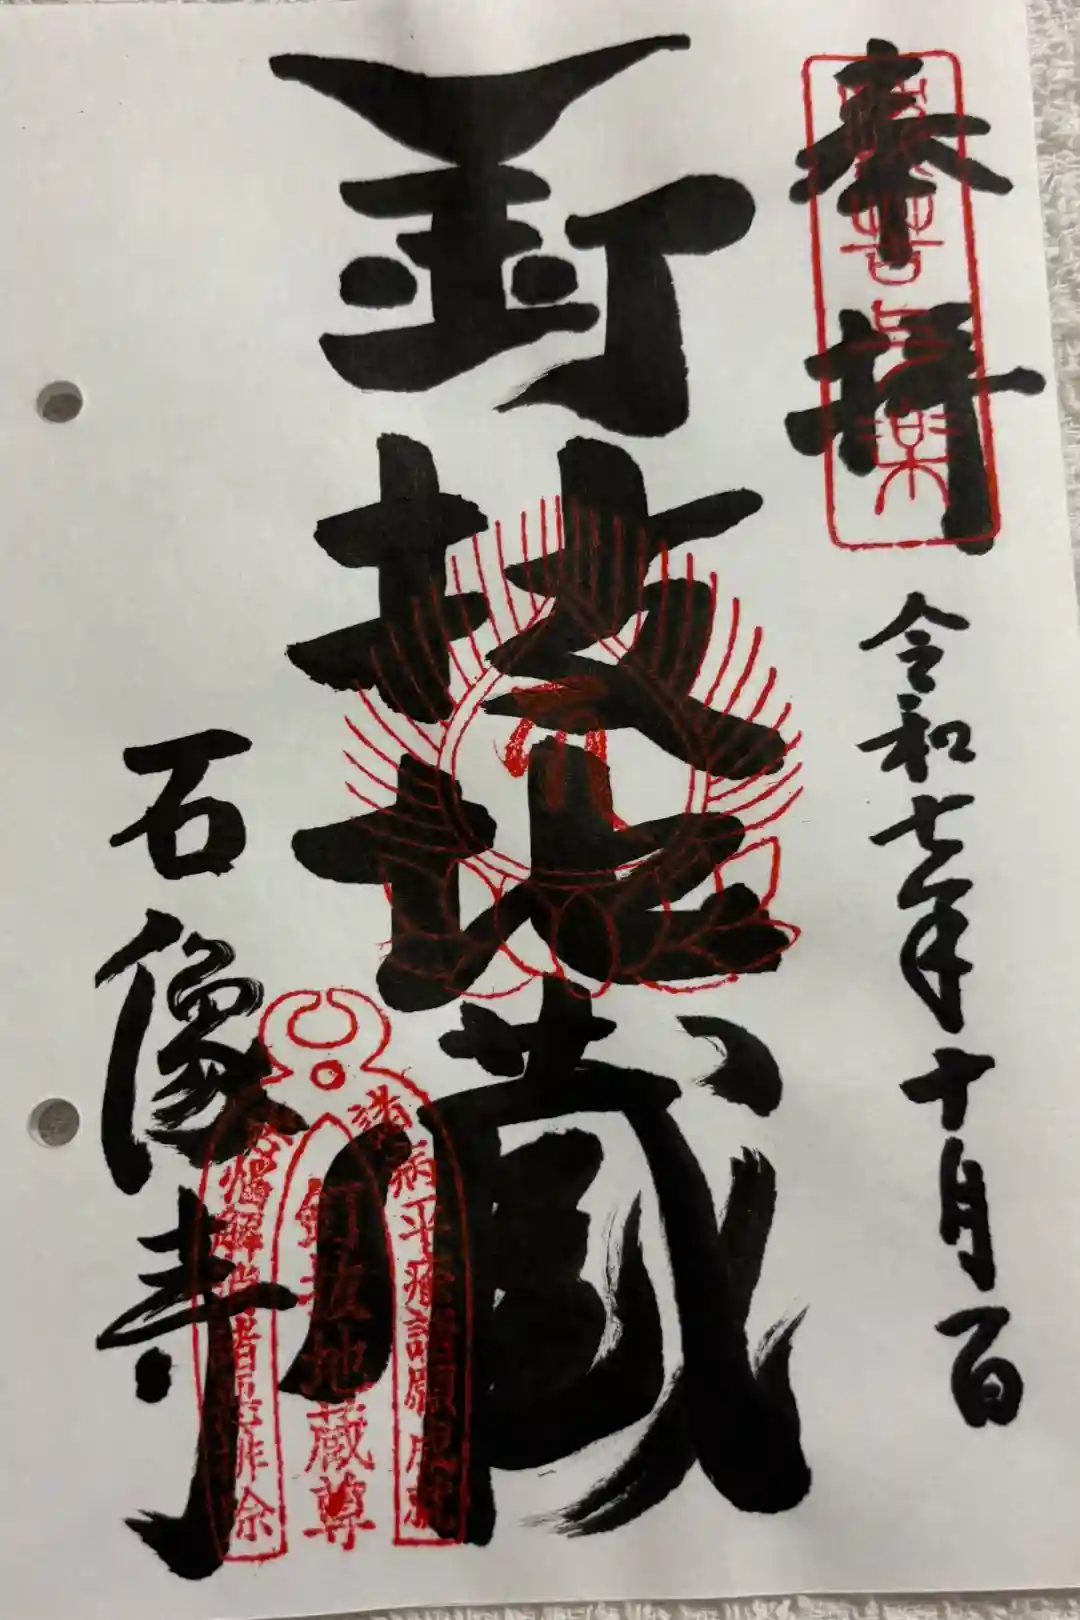 奉拝
令和七年十月一日
釘抜地蔵
石像寺
諸病平癒諸願成就
釘抜地蔵尊